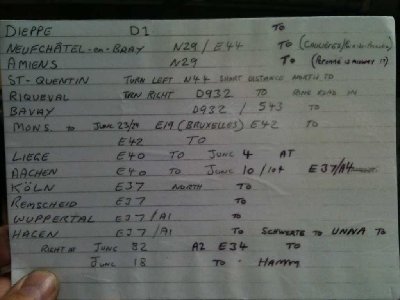 DIEPPE D1 TO
NEUFCHÂTEL-en-BRAY N29 / E44 TO
AMIENS N29 TO (PERONNE IS MIDWAY
ST-QUENTIN TURN LEFT N44 SHORT DISTANCE NORTH TO
RIQUEVAL TURN RIGHT D932 TO RING ROAD IN
BAVAY D932 / 543 TO
MONS. TO JUNC 23/24 E19 (BRUXELLES) E42 TO
E42 TO
LIEGE E40 TO JUNC 4 AT
AACHEN E40 TO JUNC 10/104 E37/A4
KÖLN E37 NORTH TO
REMSCHEID E37 TO
WUPPERTAL E37 / A1 TO
HAGEN E37 / A1 TO SCHWERTE TO UNNA TO
RIGHT AT JUNC 82 A2 E34 TO
JUNC 18 TO HAMM